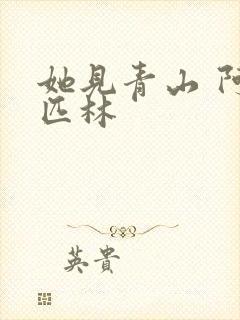 她见青山 阿
匹林
英貴